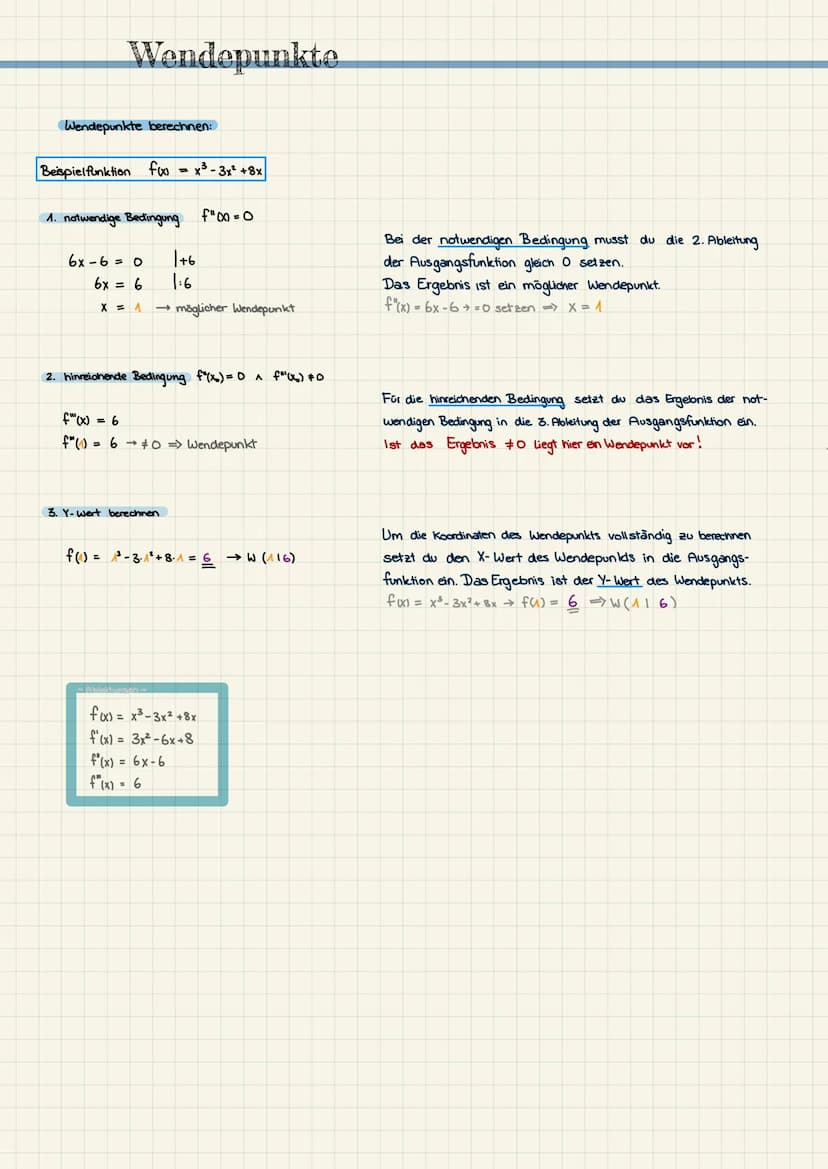 Wendepunkte
Wendepunkte berechnen:
Beispielfunktion f(x) = x³ - 3x² + 8x
1. notwendige Bedingung f''(x) = 0
6x - 6 = 0 |+6
6x = 6 |:6
x = 1 → möglicher Wendepunkt
Bei der notwendigen Bedingung musst du die 2. Ableitung
der Ausgangsfunktion gleich 0 setzen.
Das Ergebnis ist ein möglicher Wendepunkt.
f''(x) = 6x - 6 → = 0 setzen ⇒ x = 1
2. hinreichende Bedingung f''(x₀) = 0 ∧ f'''(x₀) ≠ 0
f'''(x) = 6
f'''(1) = 6 → ≠ 0 ⇒ Wendepunkt
Für die hinreichenden Bedingung setzt du das Ergebnis der not-
wendigen Bedingung in die 3. Ableitung der Ausgangsfunktion ein.
Ist das Ergebnis ≠ 0 liegt hier ein Wendepunkt vor!
3. Y-Wert berechnen
f(1) = 1³ - 3·1² + 8·1 = 6 → W (1|6)
Um die Koordinaten des Wendepunkts vollständig zu berechnen
setzt du den X-Wert des Wendepunkts in die Ausgangs-
funktion ein. Das Ergebnis ist der Y-Wert des Wendepunkts.
f(x) = x³ - 3x² + 8x → f(1) = 6 ⇒ W (1 | 6)
- Ableitungen -
f(x) = x³ - 3x² + 8x
f'(x) = 3x² - 6x + 8
f''(x) = 6x - 6
f'''(x) = 6